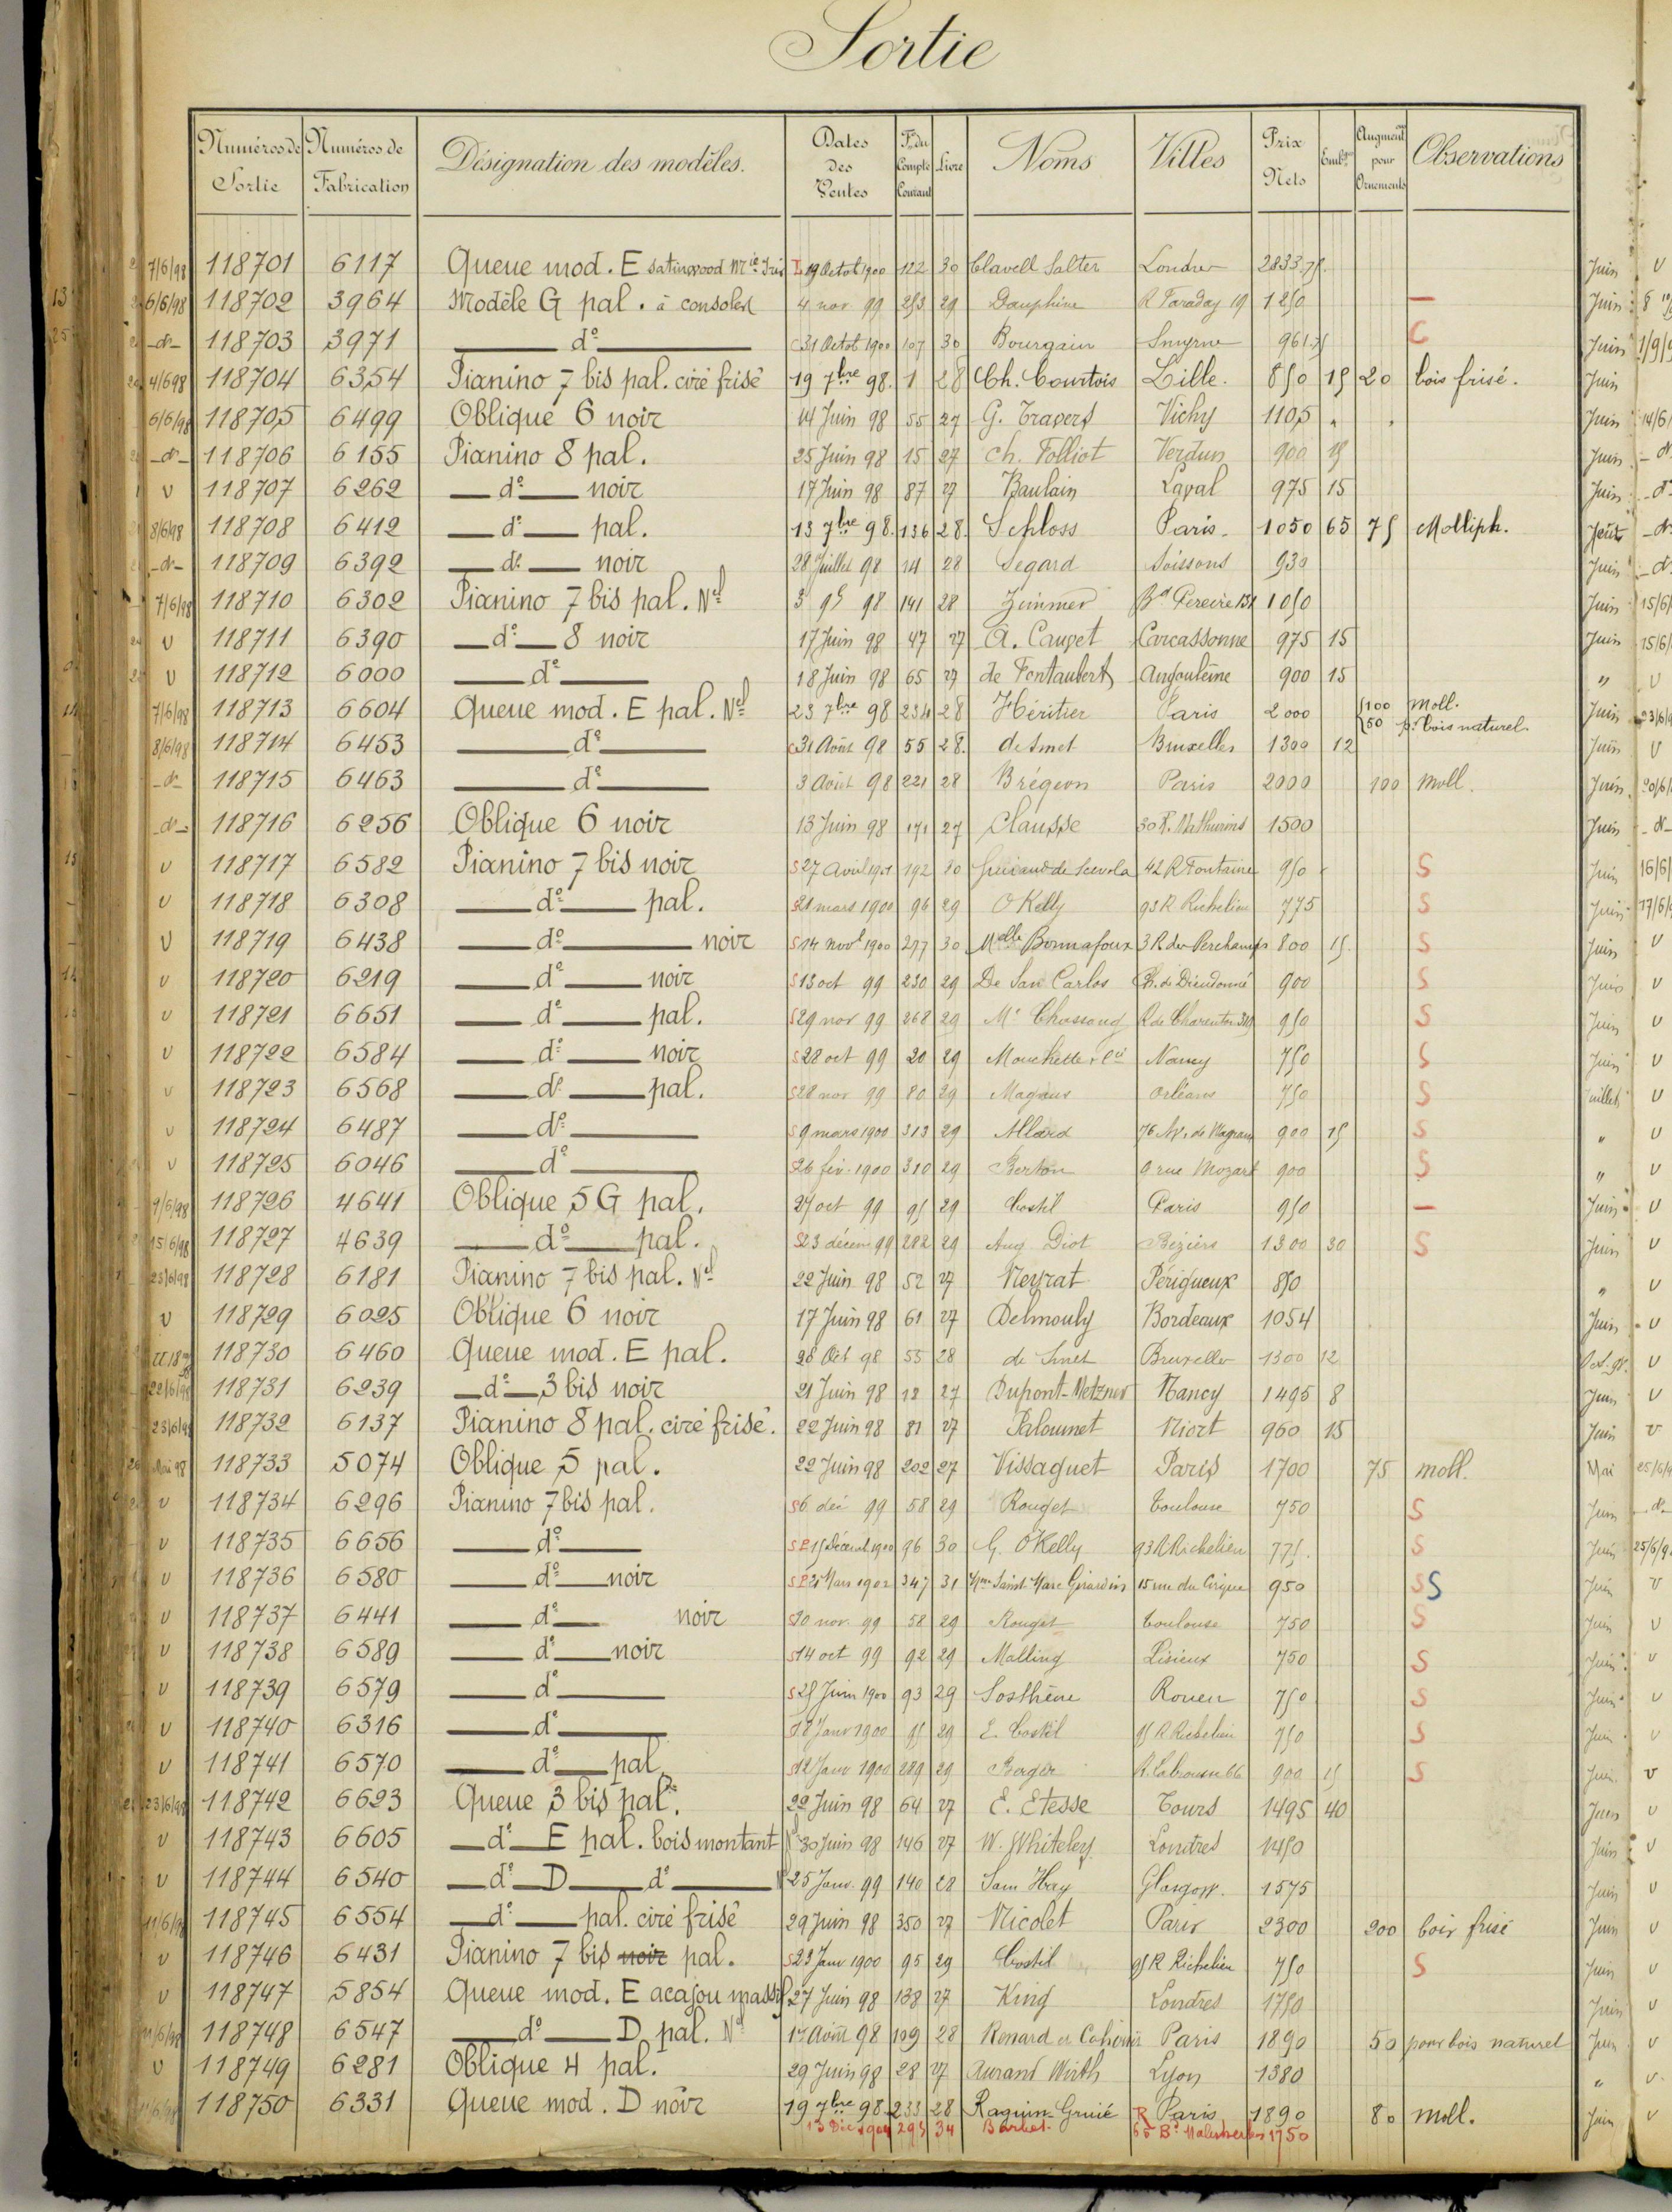 Sortie
Numéros de Sortie | Numéros de Fabrication | Désignation des modèles. | Dates des Ventes | Fº du Compte Courant | Livre | Noms | Villes | Prix Nets | Emb.ge | Augment.on pour Ornements | Observations
7/6/98 118701 6117 Queue mod. E satinwood 19 Octob 1900 122 30 Clavell Salter Londres 2833.75 Juin
6/6/98 118702 3964 Modèle G pal. à consoles 4 nov 99 253 29 Dauphine R Faraday 19 1250 — Juin
-dº- 118703 3971 dº C 31 Octob 1900 107 30 Bourgain Smyrne 961.75 C Juin
4/6 98 118704 6354 Pianino 7 bis pal. ciré frisé 19 7bre 98. 1 28 Ch. Courtois Lille. 850 15 20 bois frisé. Juin
6/6/98 118705 6499 Oblique 6 noir 14 Juin 98 55 27 G. Travers Vichy 1105 Juin
-dº- 118706 6155 Pianino 8 pal. 25 Juin 98 15 27 Ch. Folliot Verdun 900 15 Juin
v 118707 6262 dº noir 17 Juin 98 87 27 Baulain Laval 975 15 Juin
8/6/98 118708 6412 dº pal. 13 7bre 98. 136 28. Schloss Paris. 1050 65 75 Molliph.
-dº- 118709 6392 dº noir 28 Juillet 98 14 28 Segard Soissons 930 Juin
7/6/98 118710 6302 Pianino 7 bis pal. Nel 3 98 141 28 Zimmer Bd Pereire 131 1050 Juin
v 118711 6390 dº 8 noir 17 Juin 98 47 27 A. Cauvet Carcassonne 975 15 Juin
v 118712 6000 dº 18 Juin 98 65 27 de Fontaubert Angoulême 900 15 "
7/6/98 118713 6604 Queue mod. E pal. Nel 23 7bre 98 234 28 Héritier Paris 2000 100 moll. 50 p. bois naturel. Juin
8/6/98 118714 6453 dº 31 Août 98 55 28. de Smet Bruxelles 1300 12 Juin
-dº- 118715 6463 dº 3 Août 98 221 28 Brégeon Paris 2000 100 moll. Juin
-dº- 118716 6256 Oblique 6 noir 13 Juin 98 171 27 Clausse 30 R. Mathurins 1500 Juin
v 118717 6582 Pianino 7 bis noir S 27 Avril 1901 192 30 Guiraud de Scevola 42 R Fontaine 950 S Juin
v 118718 6308 dº pal. S 21 mars 1900 96 29 O Kelly 93 R Richelieu 775 S Juin
v 118719 6438 dº noir S 14 novb 1900 297 30 Melle Bonnafoux 3 R des Perchamps 800 15. S Juin
v 118720 6219 dº noir S 13 oct 99 230 29 De San Carlos 900 S Juin
v 118721 6651 dº pal. S 29 nov 99 268 29 Mr Chassaug R de Charenton 950 S Juin
v 118722 6584 dº noir S 28 oct 99 20 29 Mouchette & Cie Nancy 750 S Juin
v 118723 6568 dº pal. S 28 nov 99 80 29 Magnus Orléans 750 S Juillet
v 118724 6487 dº S 9 mars 1900 313 29 Allard 76 Av. de Wagram 900 15 S "
v 118725 6046 dº S 26 fév. 1900 310 29 Berton 9 rue Mozart 900 S "
9/6/98 118726 4641 Oblique 5 G pal. 27 oct 99 95 29 Costil Paris 950 — Juin
15/6/98 118727 4639 dº pal. S 23 décem 99 282 29 Aug Diot Béziers 1300 30 S Juin
25/6/98 118728 6181 Pianino 7 bis pal. Nel 22 Juin 98 52 27 Neyrat Périgueux 850 "
v 118729 6025 Oblique 6 noir 17 Juin 98 61 27 Delmouly Bordeaux 1054 Juin
118730 6460 Queue mod. E pal. 28 Oct 98 55 28 de Smet Bruxelles 1300 12
22/6/98 118731 6239 dº 3 bis noir 21 Juin 98 12 27 Dupont-Metzner Nancy 1495 8 Juin
23/6/98 118732 6137 Pianino 8 pal. ciré frisé. 22 Juin 98 81 27 Paloumet Niort 960 15 Juin
Mai 98 118733 5074 Oblique 5 pal. 22 Juin 98 202 27 Vissaguet Paris 1700 75 moll. Mai
v 118734 6296 Pianino 7 bis pal. S 6 déc 99 58 29 Rouget Toulouse 750 S Juin
v 118735 6656 dº 15 Décemb 1900 96 30 G. O'Kelly 93 R Richelieu 775. S Juin
v 118736 6580 dº noir 21 Mars 1902 347 31 Mme Saint Marc Girardin 15 rue du Cirque 950 S S Juin
v 118737 6441 dº noir S 10 nov. 99 58 29 Rouget Toulouse 750 S Juin
v 118738 6589 dº noir S 14 oct 99 92 29 Malling Lisieux 750 S Juin
v 118739 6579 dº S 25 Juin 1900 93 29 Sosthène Rouen 750 S Juin
v 118740 6316 dº 18 Janv 1900 95 29 E. Costil 95 R Richelieu 750 S Juin
v 118741 6570 dº pal. S 12 Janv 1900 289 29 Berger R. Labrousse 66 900 15 S Juin
23/6/98 118742 6623 Queue 3 bis pal. 22 Juin 98 64 27 E. Etesse Tours 1495 40 Juin
v 118743 6605 dº E pal. bois montant 30 Juin 98 146 27 W. Whiteley Londres 1450 Juin
v 118744 6540 dº D dº 25 Janv. 99 140 28 Sam Hay Glasgow. 1575 Juin
118745 6554 dº pal. ciré frisé 29 Juin 98 350 27 Nicolet Paris 2300 200 bois frisé Juin
v 118746 6431 Pianino 7 bis noir pal. S 23 Janv 1900 95 29 Costil 95 R Richelieu 750 S Juin
v 118747 5854 Queue mod. E acajou massif 27 Juin 98 138 27 King Londres 1750 Juin
118748 6547 dº D pal. Nel 17 Août 98 109 28 Renard et Paris 1890 50 pour bois naturel Juin
v 118749 6281 Oblique 4 pal. 29 Juin 98 28 27 Aurand Wirth Lyon 1380 "
118750 6331 Queue mod. D noir 19 7bre 98. 233 28 Raguin-Gruié R Paris 1890 80 moll. Juin
13 Déc 1904 295 34 65 Bd Malesherbes 1750